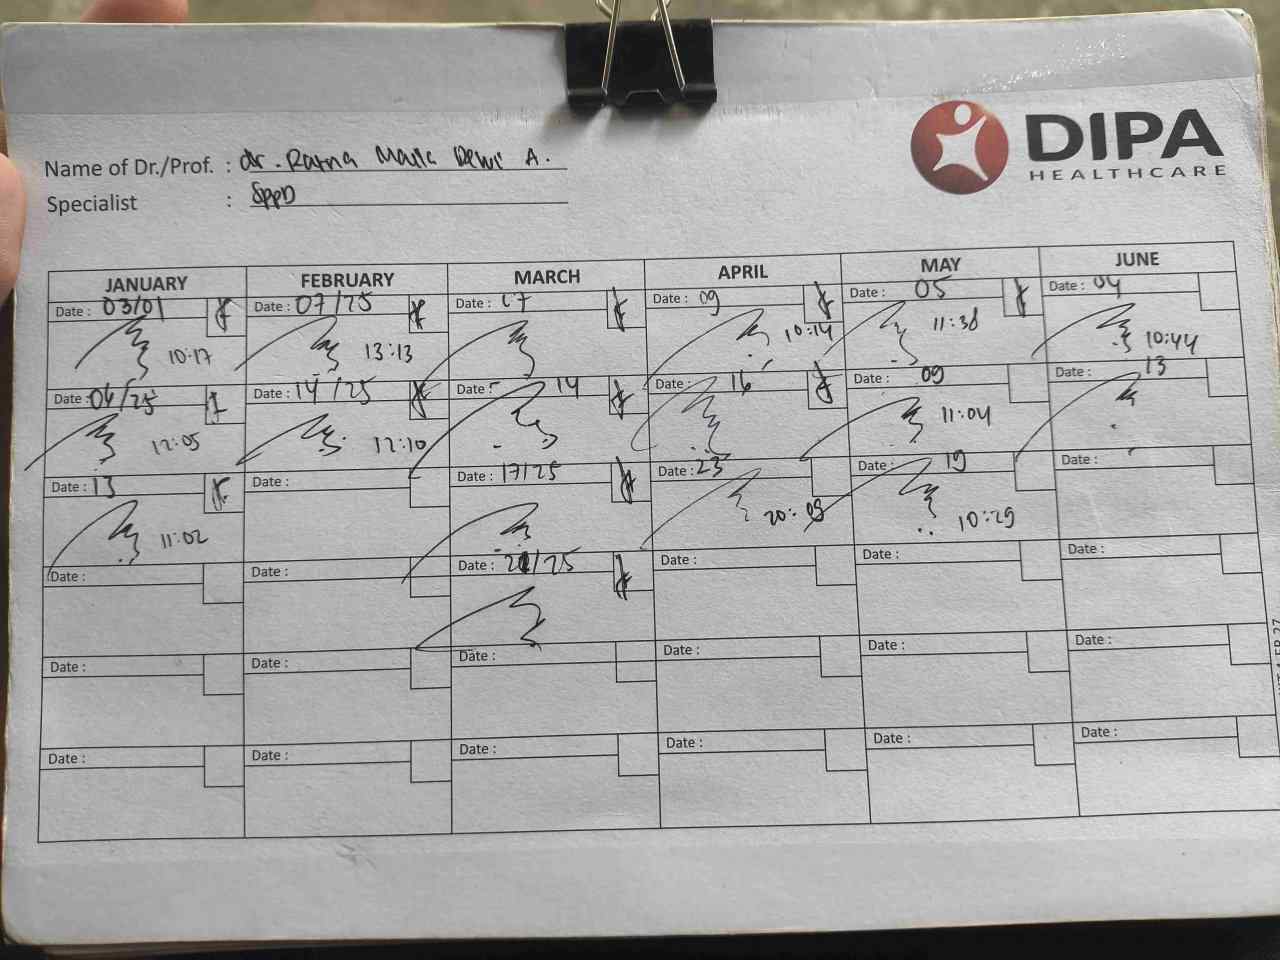 DIPA
HEALTHCARE
Name of Dr./Prof. : dr. Ratna Maila Dewi A.
Specialist : SppD
JANUARY FEBRUARY MARCH APRIL MAY JUNE
Date : 03/01 Date : 07/25 Date : 07 Date : 09 Date : 05 Date : 04
10:17 13:13 10:14 11:38 10:44
Date : 06/25 Date : 14/25 Date : 14 Date : 16 Date : 09 Date : 13
12:05 12:10 11:04
Date : 13 Date : Date : 17/25 Date : 23 Date : 19 Date :
11:02 20:09 10:29
Date : Date : Date : 21/25 Date : Date : Date :
Date : Date : Date : Date : Date : Date :
Date : Date : Date : Date : Date : Date :